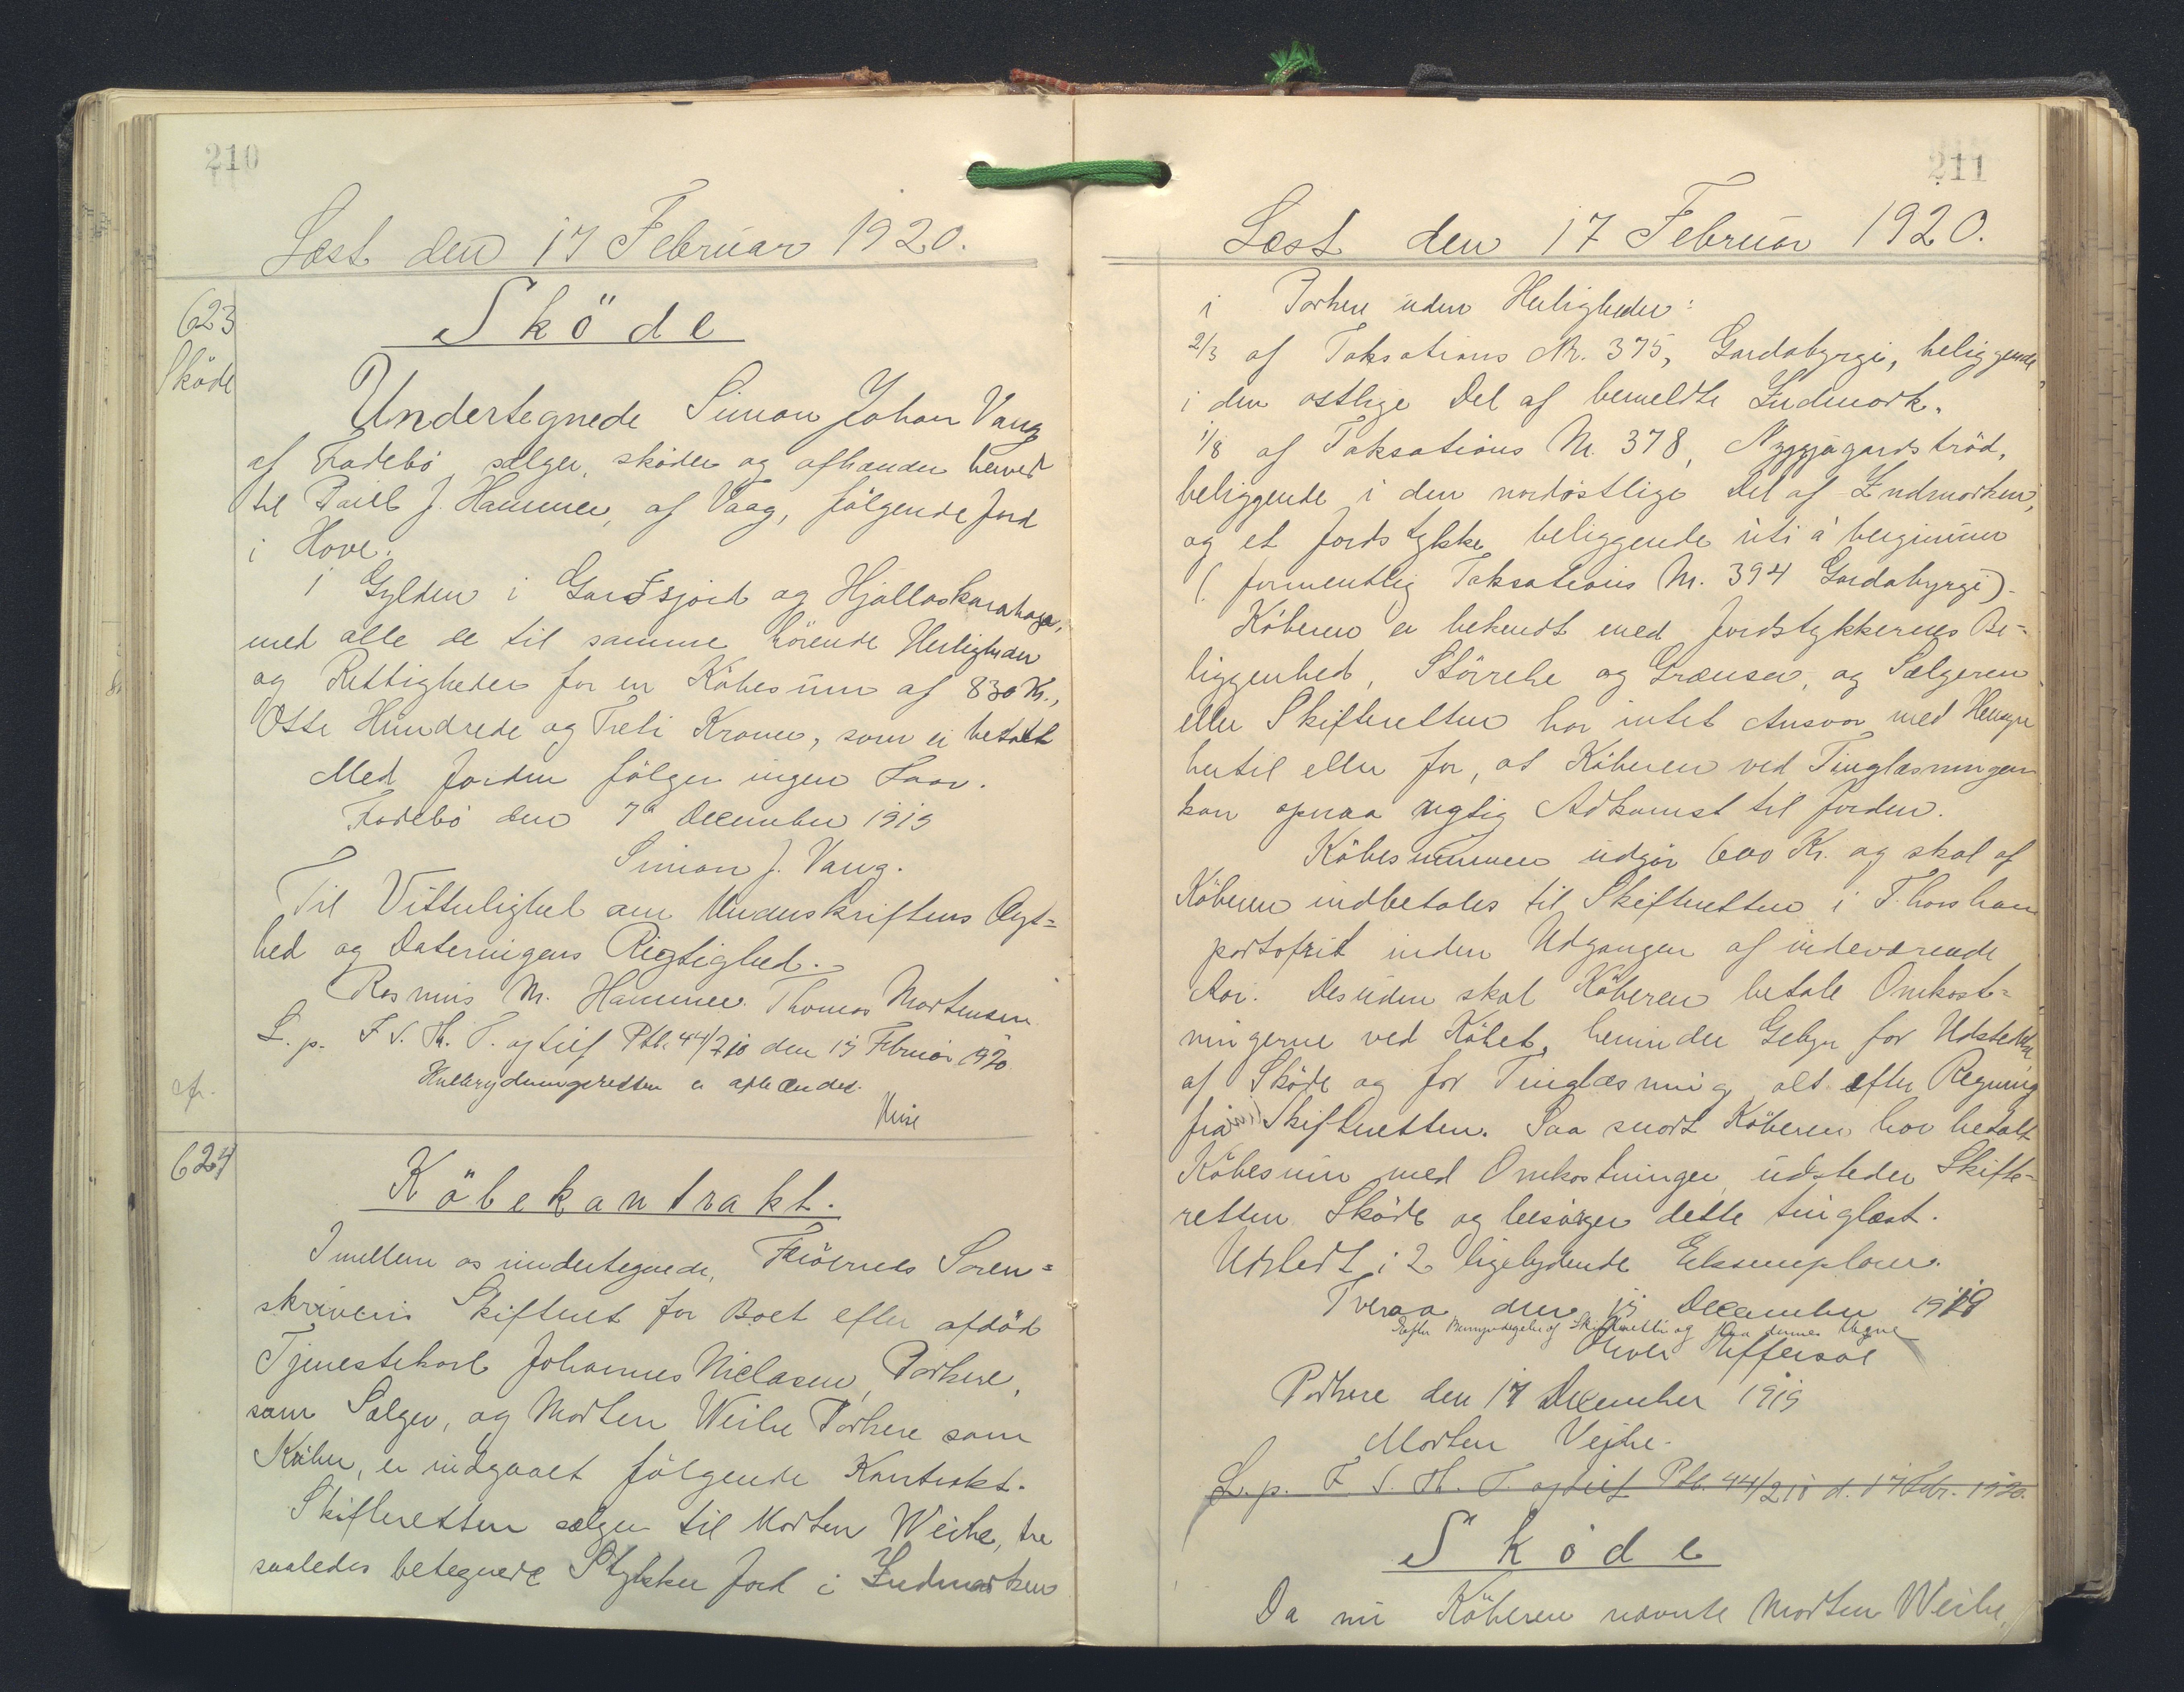 210
Læst den 17 Februar 1920.
623
Sköde
Sköde
Undertegnede Simon Johan Vang
af Frodebö sælger, sköder og afhænder herved
til Poul J. Hammer, af Vaag, fölgende Jord
i Hove.
1 Gylden i Gardsjord og Hjallaskarahaga,
med alle de til samme hörende Herligheder
og Rettigheder for en Köbesum af 830 Kr.,
Otte Hundrede og Treti Kroner, som er betalt
Med Jorden fölger ingen Faar.
Frodebö den 7de December 1919
Simon J. Vang.
Til Vitterlighed om Underskriftens Ægt=
hed og Dateringens Rigtighed.
Rasmus M. Hammer. Thomas Mortensen.
L. p. F. S. Th. T. og tilf Ptb. 44/210 den 17 Februar 1920.
er afhændet.
624
Köbekontrakt.
Imellem os undertegnede, Færöernes Soren=
skriveris Skifteret for Boet efter afdöd
Tjenestekarl Johannes Niclasen, Porkere,
som Sælger, og Morten Weihe Porkere som
Köber, er indgaaet fölgende Kontrakt.
Skifteretten sælger til Morten Weihe, tre
saaledes betegnede Stykker Jord i Indmarken
211
Læst den 17 Februar 1920.
i Porkere uden Herligheder:
2/3 af Taksations Nr. 375, Gardabyrgi, beliggende
i den östlige Del af bemeldte Indmark.
1/8 af Taksations Nr. 378, Nyggjagardströd,
beliggende i den nordöstlige Del af Indmarken,
og et Jordstykke beliggende úti á berginum
(formentlig Taksations Nr. 394 Gardabyrgi).
Köberen er bekendt med Jordstykkernes Be=
liggenhed, Störrelse og Grænser, og Sælgeren
eller Skifteretten har intet Ansvar med Hensyn
hertil eller for, at Köberen ved Tinglæsningen
kan opnaa rigtig Adkomst til Jorden.
Köbesummen udgör 600 Kr. og skal af
Köberen indbetales til Skifteretten i Thorshavn
portofrit inden Udgangen af indeværende
Aar. Desuden skal Köberen betale Omkost=
ningerne ved Köbet, herunder Gebyr for Udstedelse
af Sköde og for Tinglæsning, alt efter Regning
fra Skifteretten. Saa snart Köberen har betalt
Köbesum med Omkostninger, udsteder Skifte=
retten Sköde og besörger dette tinglæst.
Udstedt i 2 ligelydende Eksemplarer.
Tveraa den 15 December 1919
Efter Bemyndigelse af Skifteretten og paa dennes Vegne
Oliver Effersöe
Porkere den 17 December 1919
Morten Vejhe.
L. p. F. S. Th. T. og tilf Ptb. 44/210 d. 17 Febr. 1920.
Sköde
Da nu Köberen nævnte Morten Weihe,